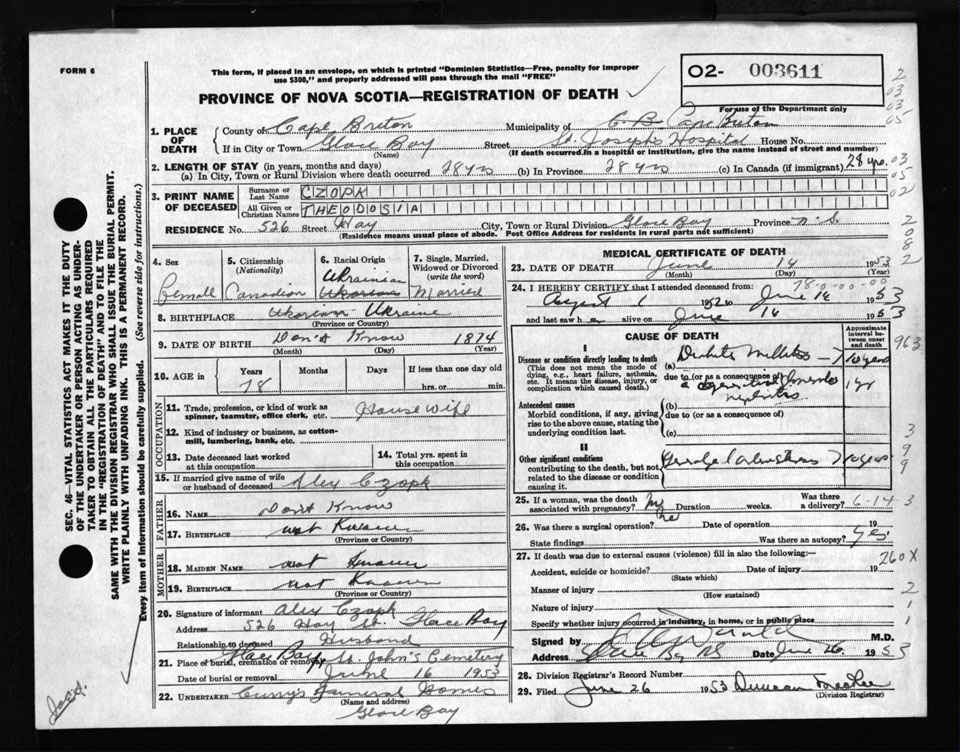 FORM 6
This form, if placed in an envelope, on which is printed "Dominion Statistics—Free, penalty for improper
use $300," and properly addressed will pass through the mail "FREE"
O2- 003611
For use of the Department only
PROVINCE OF NOVA SCOTIA—REGISTRATION OF DEATH
1. PLACE OF DEATH
County of Cape Breton Municipality of C. B. Cape Breton
If in City or Town Glace Bay Street St. Joseph's Hospital House No.
(Name) (If death occurred in a hospital or institution, give the name instead of street and number)
2. LENGTH OF STAY (in years, months and days)
(a) In City, Town or Rural Division where death occurred 28 yrs (b) In Province 28 yrs (c) In Canada (if immigrant) 28 yrs.
3. PRINT NAME OF DECEASED
Surname or Last Name CZOPK
All Given or Christian Names THEODOSIA
RESIDENCE No. 526 Street Hay City, Town or Rural Division Glace Bay Province N.S.
(Residence means usual place of abode. Post Office Address for residents in rural parts not sufficient)
4. Sex Female
5. Citizenship (Nationality) Canadian
6. Racial Origin Ukrainian
7. Single, Married, Widowed or Divorced (write the word) Married
8. BIRTHPLACE Ukraine
(Province or Country)
9. DATE OF BIRTH Don't Know 1874
(Month) (Day) (Year)
10. AGE in Years Months Days If less than one day
78 hrs. or min.
OCCUPATION
11. Trade, profession, or kind of work as
spinner, teamster, office clerk, etc. House Wife
12. Kind of industry or business, as cotton-
mill, lumbering, bank, etc.
13. Date deceased last worked
at this occupation
14. Total yrs. spent in
this occupation
15. If married give name of wife
or husband of deceased Alex Czopk
FATHER
16. NAME Don't Know
17. BIRTHPLACE not Known
(Province or Country)
MOTHER
18. MAIDEN NAME not Known
19. BIRTHPLACE not Known
(Province or Country)
20. Signature of informant Alex Czopk
Address 526 Hay St. Glace Bay
Relationship to deceased Husband
21. Place of burial, cremation or removal Glace Bay St. John's Cemetery
Date of burial or removal June 16 1953
22. UNDERTAKER Curry's Funeral Homes
(Name and address)
Glace Bay
MEDICAL CERTIFICATE OF DEATH
23. DATE OF DEATH June 14 1953
(Month) (Day) (Year)
78-0-00-00
24. I HEREBY CERTIFY that I attended deceased from:
August 1 1952 to June 14 1953
and last saw h alive on June 14 1953
CAUSE OF DEATH
Approximate interval between onset and death
I
Disease or condition directly leading to death
(This does not mean the mode of
dying, e.g., heart failure, asthenia,
etc. It means the disease, injury, or
complication which caused death.)
(a) 10 years
due to (or as a consequence of)
nephritis 1 yr
Antecedent causes
Morbid conditions, if any, giving
rise to the above cause, stating the
underlying condition last.
(b)
due to (or as a consequence of)
(c)
II
Other significant conditions
contributing to the death, but not
related to the disease or condition
causing it.
10 years
25. If a woman, was the death
associated with pregnancy? Duration weeks. Was there
a delivery? 6-14
26. Was there a surgical operation? Date of operation 19
State findings Was there an autopsy?
27. If death was due to external causes (violence) fill in also the following:—
260X
Accident, suicide or homicide? Date of injury 19
(State which)
Manner of injury
(How sustained)
Nature of injury
Specify whether injury occurred in industry, in home, or in public place
Signed by M.D.
Address Glace Bay NS June 26 1953
28. Division Registrar's Record Number
29. Filed June 26 1953 Duncan
(Division Registrar)
963
SEC. 46—VITAL STATISTICS ACT MAKES IT THE DUTY
OF THE UNDERTAKER OR PERSON ACTING AS UNDER-
TAKER TO OBTAIN ALL THE PARTICULARS REQUIRED
IN THE "REGISTRATION OF DEATH" AND TO FILE THE
SAME WITH THE DIVISION REGISTRAR WHO SHALL ISSUE THE BURIAL PERMIT.
WRITE PLAINLY WITH UNFADING INK. THIS IS A PERMANENT RECORD.
Every item of information should be carefully supplied. (See reverse side for instructions.)